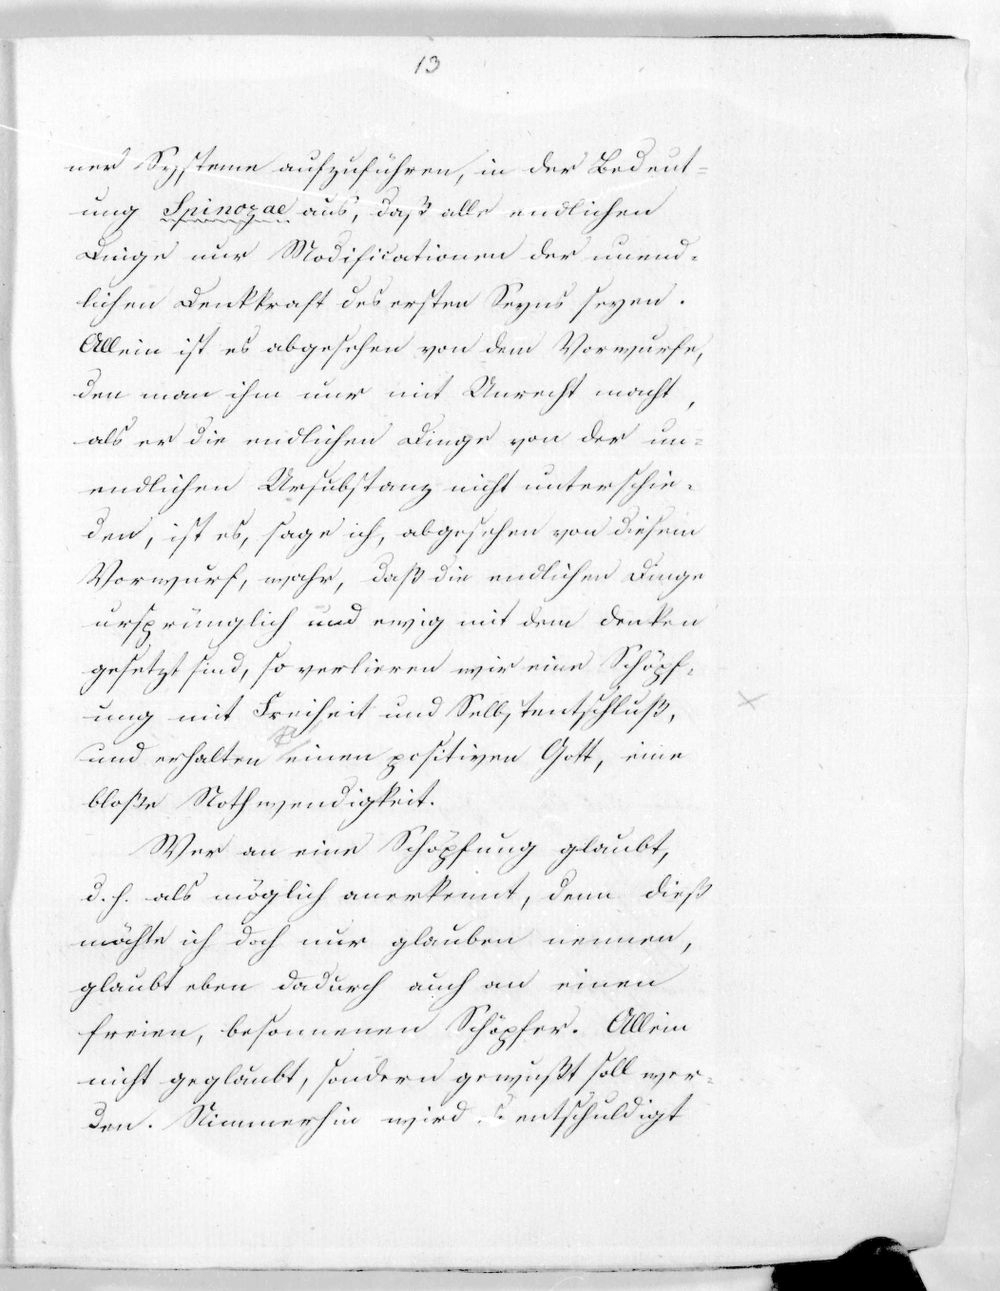 13
ner Systeme aufzuführen, in der Bedeut=
ung Spinozae aus, daß alle endlichen
Dinge nur Modificationen der unend=
lichen Denkkraft des ersten Seyns seyen.
Allein ist es abgesehen von dem Vorwurfe,
den man ihm nur mit Unrecht macht,
als er die endlichen Dinge von der un=
endlichen Ursubstanz nicht unterschie=
den, ist es, sage ich, abgesehen von diesem
Vorwurf, wahr, daß die endlichen Dinge
ursprünglich und ewig mit dem denken
gesetzt sind, so verlieren wir eine Schöpf=
ung mit Freiheit und Selbstentschluß,
und erhalten einen positiven Gott, eine
bloße Nothwendigkeit.
Wer an eine Schöpfung glaubt,
d. h. als möglich anerkennt, denn dieß
möchte ich doch nur glauben nennen,
glaubt eben dadurch auch an einen
freien, besonnenen Schöpfer. Allein
nicht geglaubt, sondern gewußt soll wer=
den. Nimmerhin wird entschuldigt